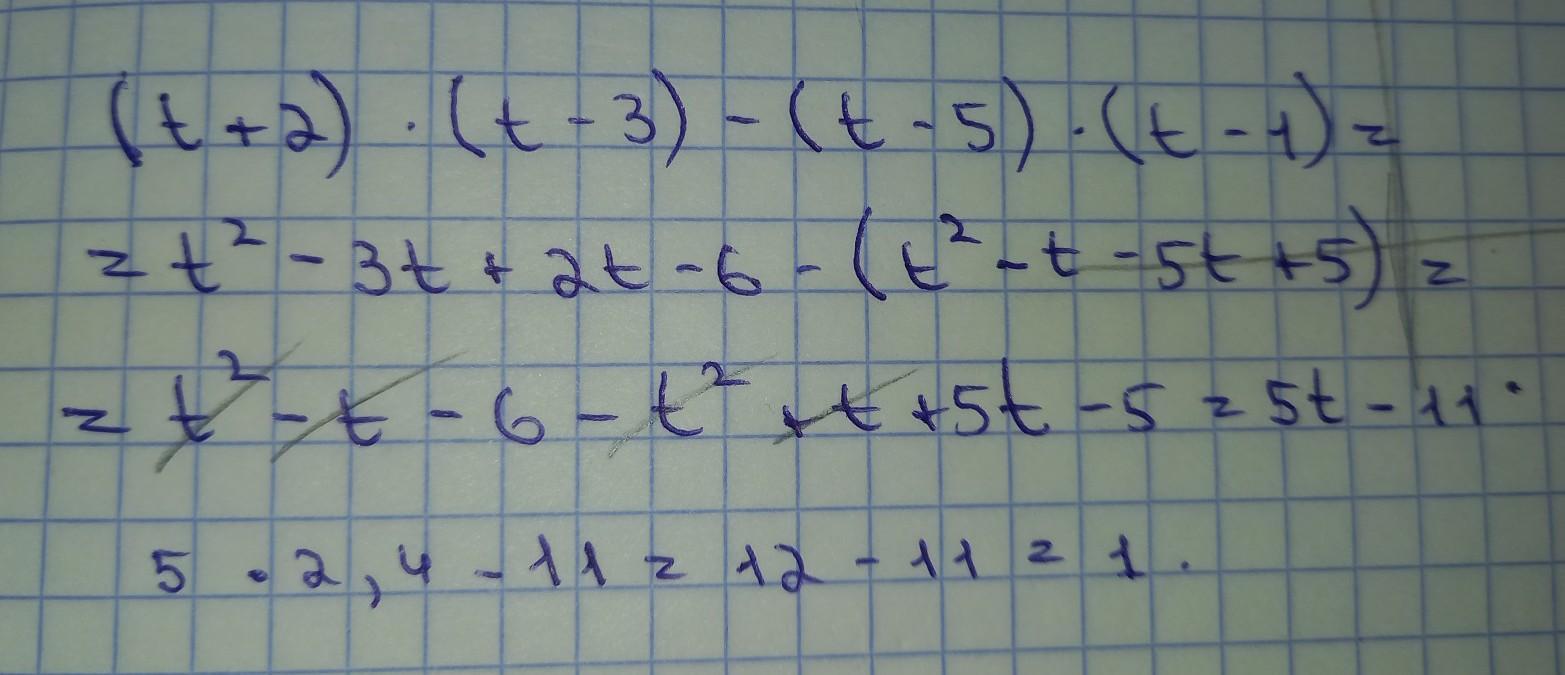 (t+2)·(t-3)-(t-5)·(t-1)=
=t²-3t+2t-6-(t²-t-5t+5)=
=t²-t-6-t²+t+5t-5=5t-11.
5·2,4-11=12-11=1.